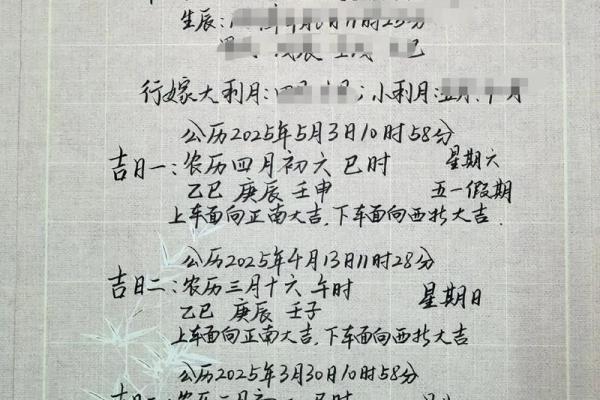 生辰:
行嫁大利月:四 月;小利月:
公历2025年5月3日10时58分
吉日一:农历四月初六 巳时 星期六
乙巳 庚辰 壬申 五一假期
上车面向正南大吉,下车面向西北大吉.
公历2025年4月13日11时28分
吉日二:农历三月十六 午时 星期日
乙巳 庚辰 壬子
上车面向正南大吉,下车面向西北大吉
公历2025年3月30日10时58分